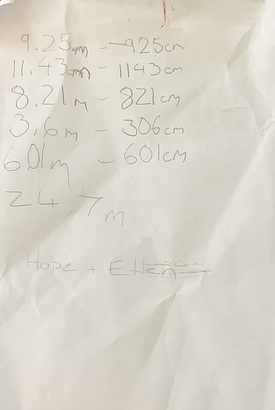 9.25m - 925cm
11.43m - 1143cm
8.21m - 821cm
3.6m - 306cm
6.01m - 601cm
24 7m
Hope + Ellen